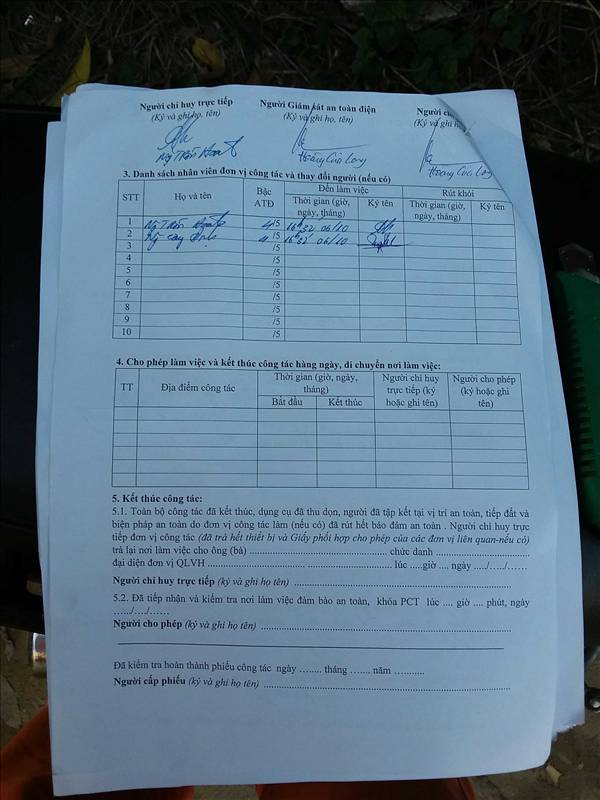 Người chỉ huy trực tiếp Người Giám sát an toàn điện Người ch
(Ký và ghi họ, tên) (Ký và ghi họ, tên) (Ký và ghi h
Hoàng Cửu Long Hoàng Cửu Long
3. Danh sách nhân viên đơn vị công tác và thay đổi người (nếu có)
STT Họ và tên Bậc ATĐ Đến làm việc Rút khỏi
Thời gian (giờ, ngày, tháng) Ký tên Thời gian (giờ, ngày, tháng) Ký tên
1 4/5 16h32 06/10
2 4/5 16h32 06/10
3 /5
4 /5
5 /5
6 /5
7 /5
8 /5
9 /5
10 /5
4. Cho phép làm việc và kết thúc công tác hàng ngày, di chuyển nơi làm việc:
TT Địa điểm công tác Thời gian (giờ, ngày, tháng) Người chỉ huy trực tiếp (ký hoặc ghi tên) Người cho phép (ký hoặc ghi tên)
Bắt đầu Kết thúc
5. Kết thúc công tác:
5.1. Toàn bộ công tác đã kết thúc, dụng cụ đã thu dọn, người đã tập kết tại vị trí an toàn, tiếp đất và
biện pháp an toàn do đơn vị công tác làm (nếu có) đã rút hết bảo đảm an toàn . Người chỉ huy trực
tiếp đơn vị công tác (đã trả hết thiết bị và Giấy phối hợp cho phép của các đơn vị liên quan-nếu có)
trả lại nơi làm việc cho ông (bà) ........................................ chức danh ....................
đại diện đơn vị QLVH ........................................ lúc .....giờ .... ngày ...../...../......
Người chỉ huy trực tiếp (ký và ghi họ tên) ........................................
5.2. Đã tiếp nhận và kiểm tra nơi làm việc đảm bảo an toàn, khóa PCT lúc .... giờ .... phút, ngày
....../..../......
Người cho phép (ký và ghi họ tên) ........................................
Đã kiểm tra hoàn thành phiếu công tác ngày ....... tháng ....... năm .........
Người cấp phiếu (ký và ghi họ tên) ........................................